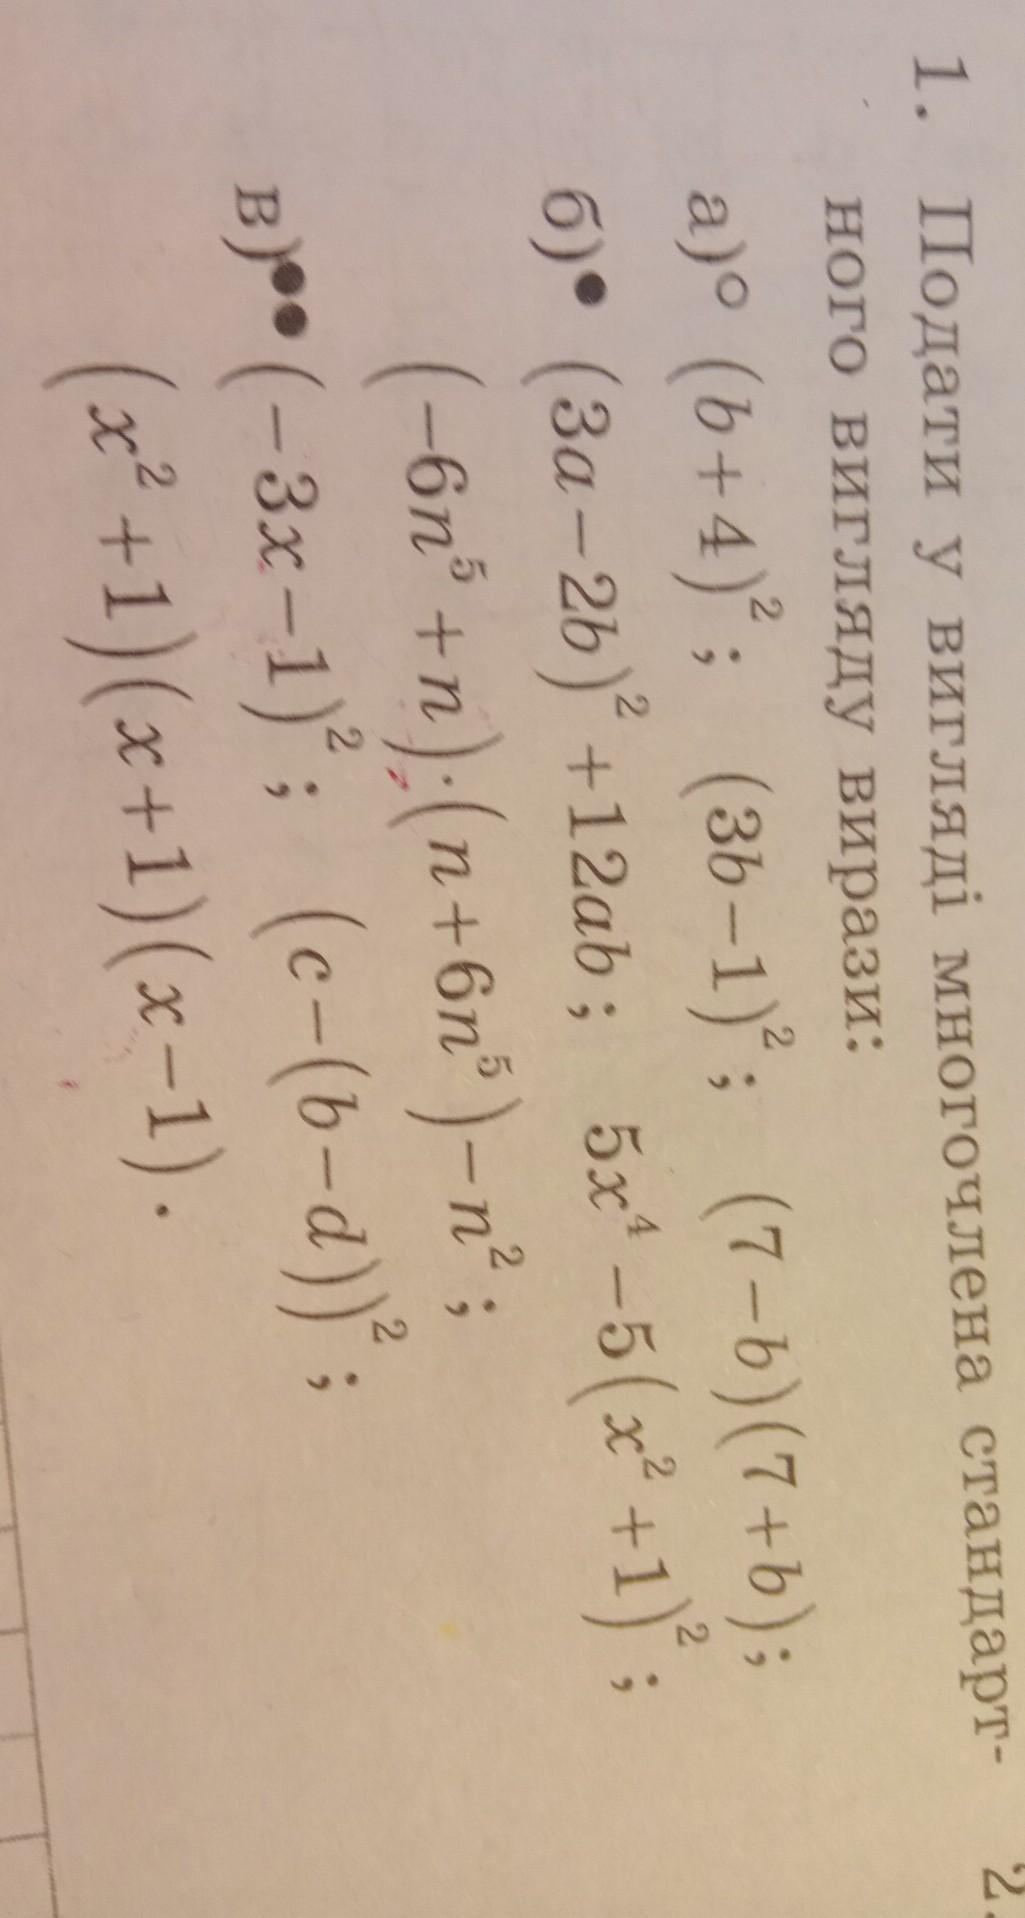 1. Подати у вигляді многочлена стандарт-
ного вигляду вирази:
а)○ (b+4)²; (3b−1)²; (7−b)(7+b);
б)● (3a−2b)²+12ab; 5x⁴−5(x²+1)²;
(−6n⁵+n)·(n+6n⁵)−n²;
в)●● (−3x−1)²; (c−(b−d))²;
(x²+1)(x+1)(x−1).
2.